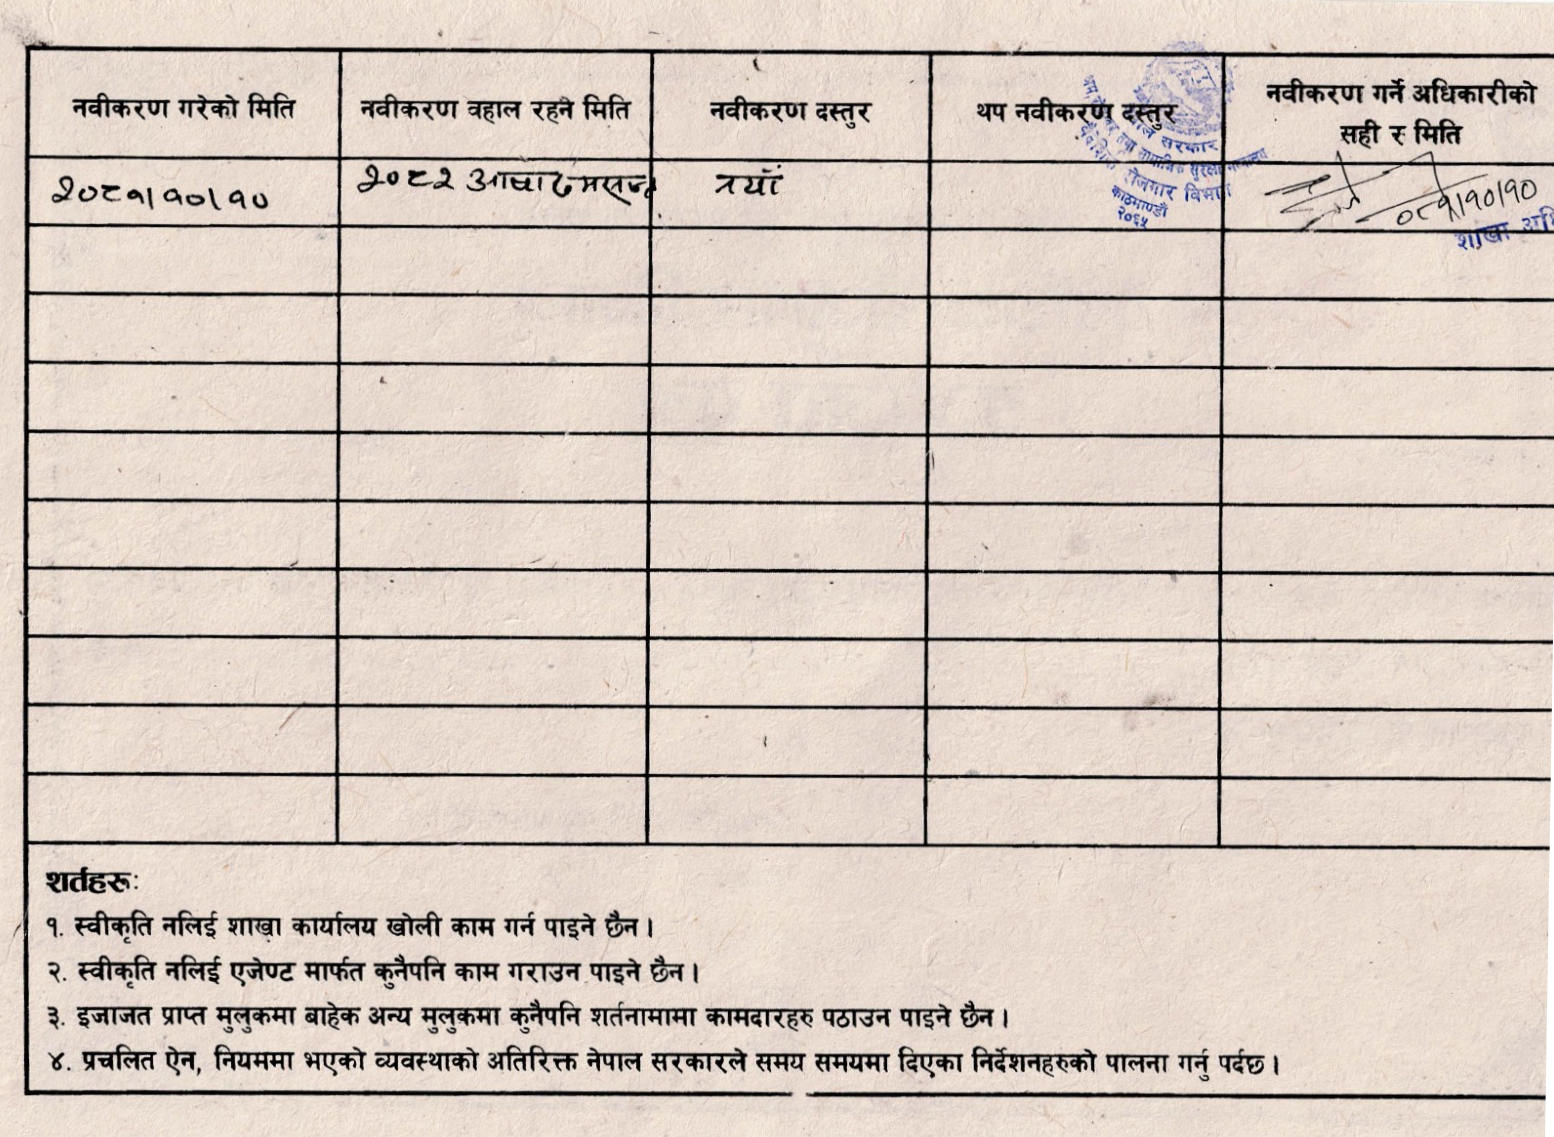 नवीकरण गरेको मिति
नवीकरण वहाल रहने मिति
नवीकरण दस्तुर
थप नवीकरण दस्तुर
नवीकरण गर्ने अधिकारीको
सही र मिति
२०८१।१०।१०
२०८२ आषाढ मसान्त
नयाँ
नेपाल सरकार
श्रम रोजगार तथा सामाजिक सुरक्षा मन्त्रालय
वैदेशिक रोजगार विभाग
काठमाण्डौं
२०६५
०८१।१०।१०
शाखा अधि
शर्तहरू:
१. स्वीकृति नलिई शाखा कार्यालय खोली काम गर्न पाइने छैन।
२. स्वीकृति नलिई एजेण्ट मार्फत कुनैपनि काम गराउन पाइने छैन।
३. इजाजत प्राप्त मुलुकमा बाहेक अन्य मुलुकमा कुनैपनि शर्तनामामा कामदारहरु पठाउन पाइने छैन।
४. प्रचलित ऐन, नियममा भएको व्यवस्थाको अतिरिक्त नेपाल सरकारले समय समयमा दिएका निर्देशनहरुको पालना गर्नु पर्दछ।